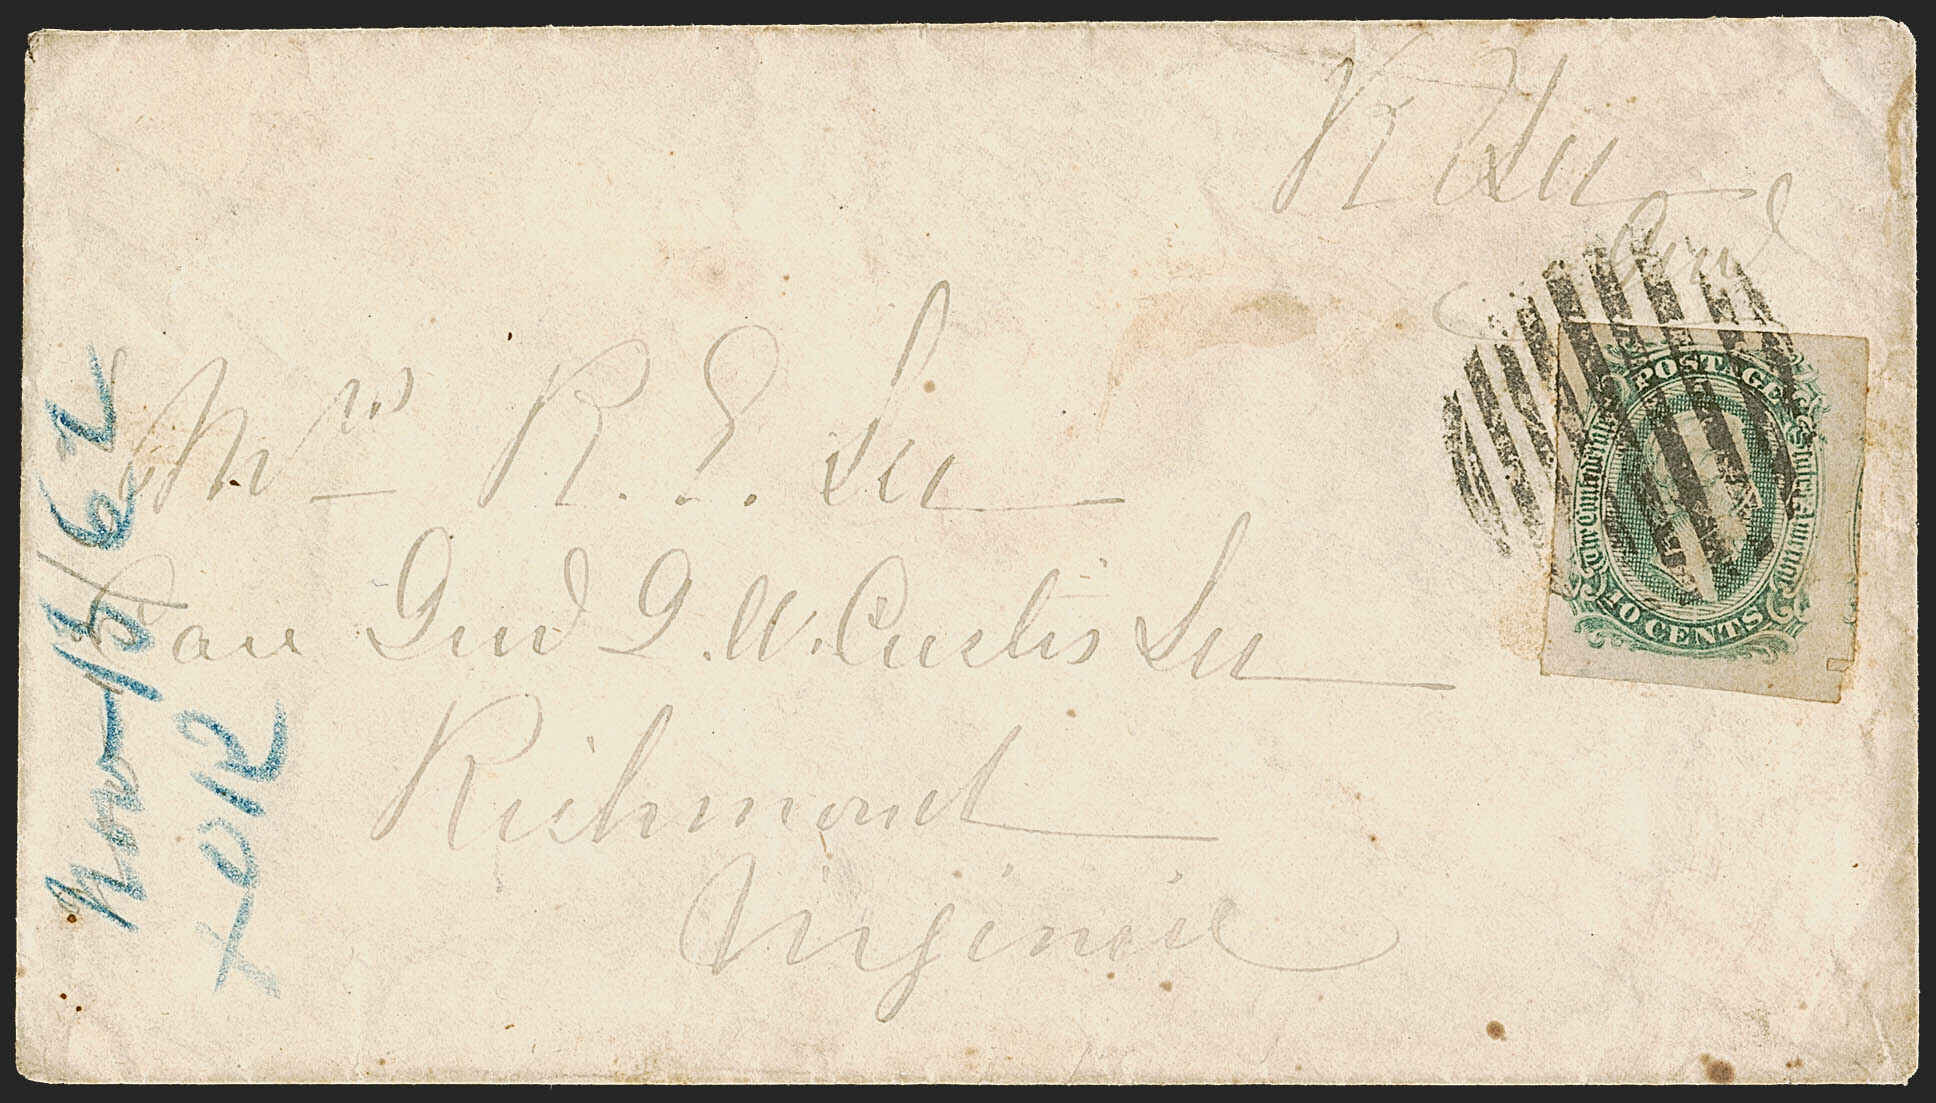 R E Lee
Genl
Mrs R. E. Lee
Care Genl G. W. Custis Lee
Richmond
Virginia
Nov 15/62
POSTAGE
The Confederate States of America
10 CENTS